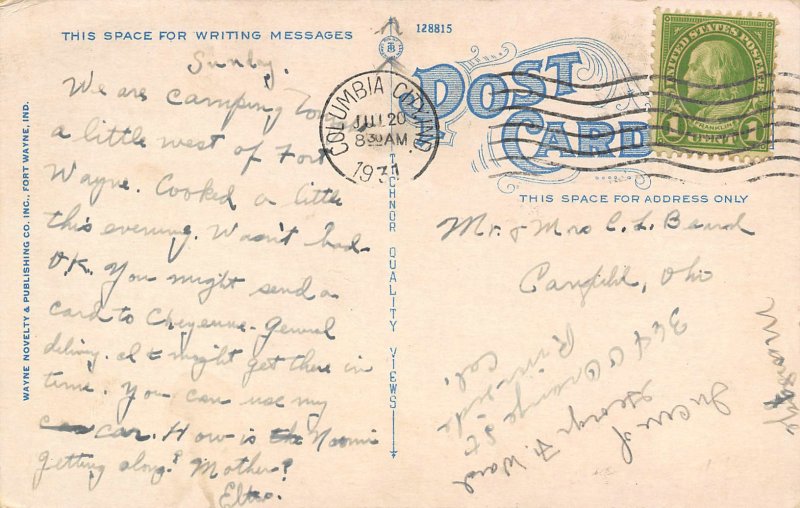 THIS SPACE FOR WRITING MESSAGES
128815
Sunday.
We are camping
a little west of Fort
Wayne. Cooked a little
this evening. Wasn't bad
O.K. You might send a
card to Cheyenne. General
delivery. I might get there in
time. You can use my
car. How is Naomi
getting along? Mother?
WAYNE NOVELTY & PUBLISHING CO. INC., FORT WAYNE, IND.
TICHNOR QUALITY VIEWS
COLUMBIA CITY, IND
JUL 20
830AM
193
POST
CARD
UNITED STATES POSTAGE
FRANKLIN
1 CENT 1
THIS SPACE FOR ADDRESS ONLY
Mr. & Mrs C. L. Beard
Canfield, Ohio
Orange St
Riverside
Cal.
George F. Ward